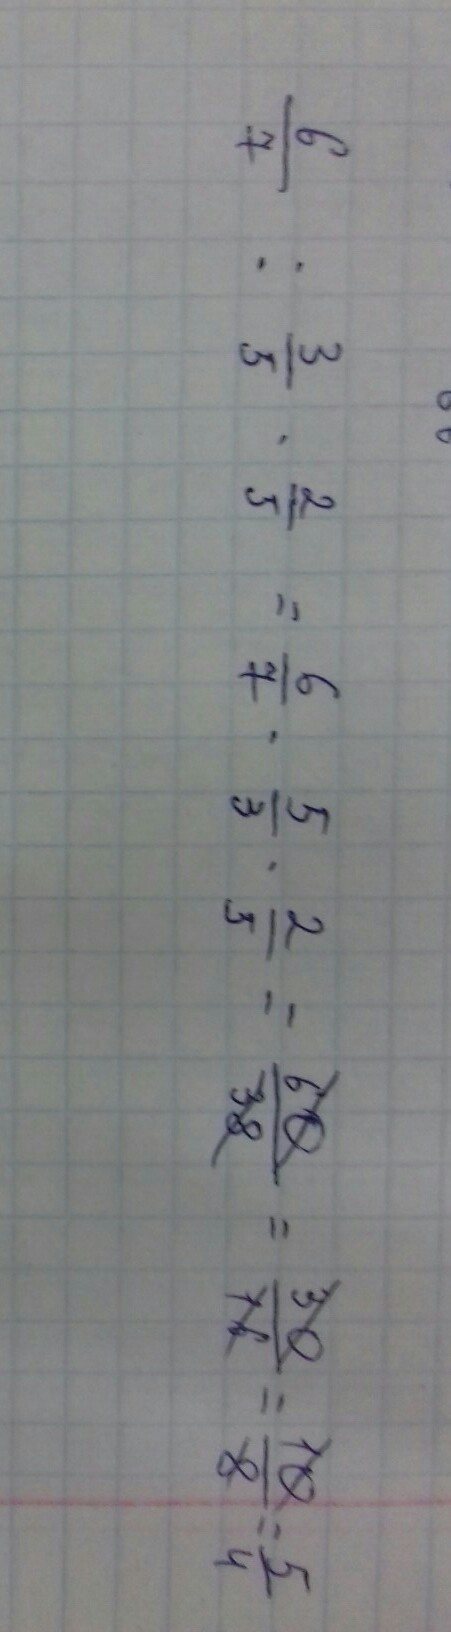 6/7 : 3/5 · 2/5 = 6/7 · 5/3 · 2/5 = 60/38 = 30/16 = 10/8 = 5/4